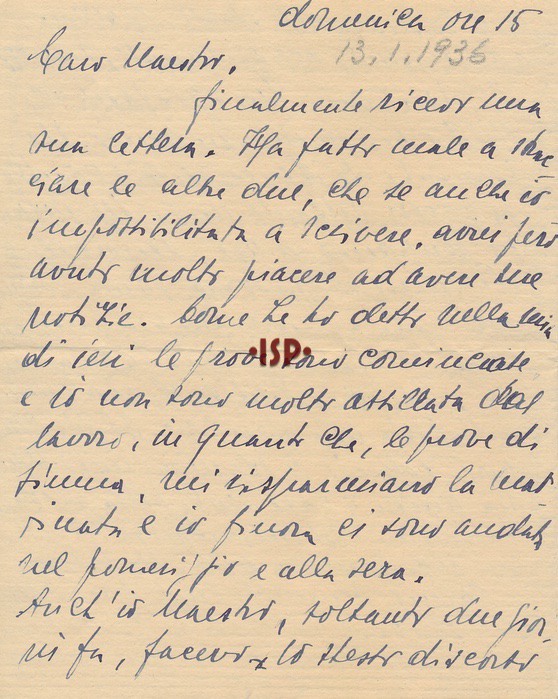 domenica ore 15
13.1.1936
Caro Maestro,
finalmente ricevo una
sua lettera. Ha fatto male a strac
ciare le altre due, che se anche io
impossibilitata a scivere, avrei però
avuto molto piacere ad avere sue
notizie. Come Le ho detto nella mia
di ieri le prove sono cominciate
e io non sono molto assillata dal
lavoro, in quanto che, le prove di
mi risparmiano la mat
tinata e io finora ci sono andata
nel pomeriggio e alla sera.
Anch'io Maestro, soltanto due gior
ni fa, facevo lo stesso discorso
•ISP•